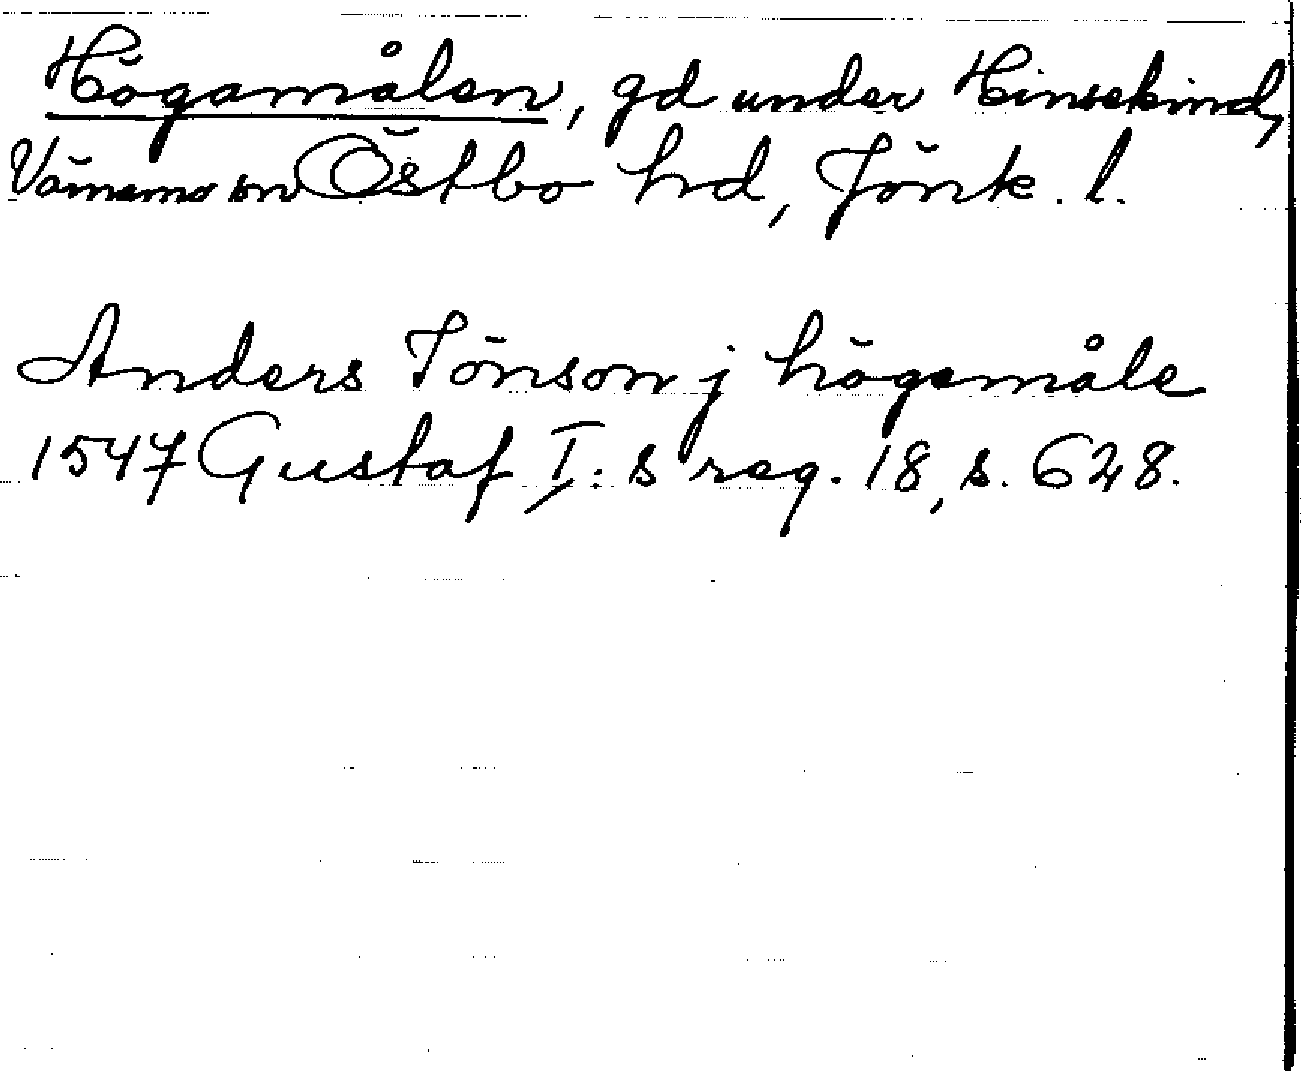 Högamålen, gd under Hinsekind,
Värnamo sn Östbo hd, Jönk. l.
Anders Jönson j högemåle
1547 Gustaf I:s reg. 18, s. 628.